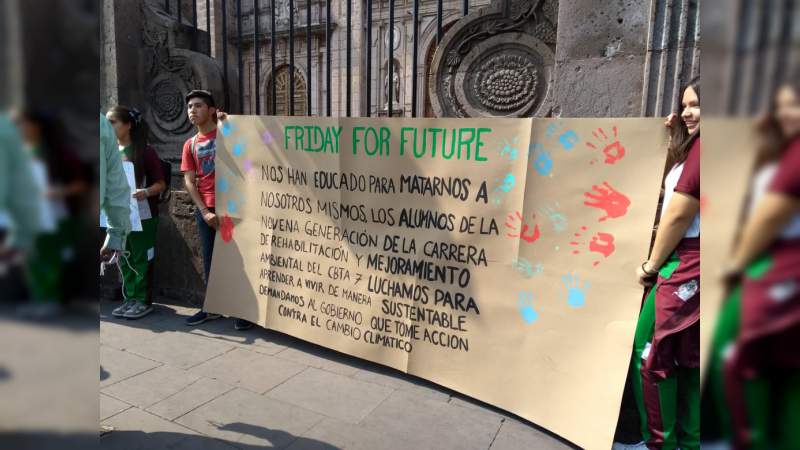 FRIDAY FOR FUTURE
NOS HAN EDUCADO PARA MATARNOS A
NOSOTROS MISMOS. LOS ALUMNOS DE LA
NOVENA GENERACIÓN DE LA CARRERA
DE REHABILITACIÓN Y MEJORAMIENTO
AMBIENTAL DEL CBTA 7 LUCHAMOS PARA
APRENDER A VIVIR DE MANERA SUSTENTABLE
DEMANDAMOS AL GOBIERNO QUE TOME ACCION
CONTRA EL CAMBIO CLIMATICO